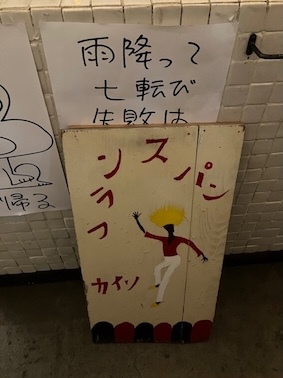 雨降って
七転び
失敗は
帰る
フランスパン
カイソ